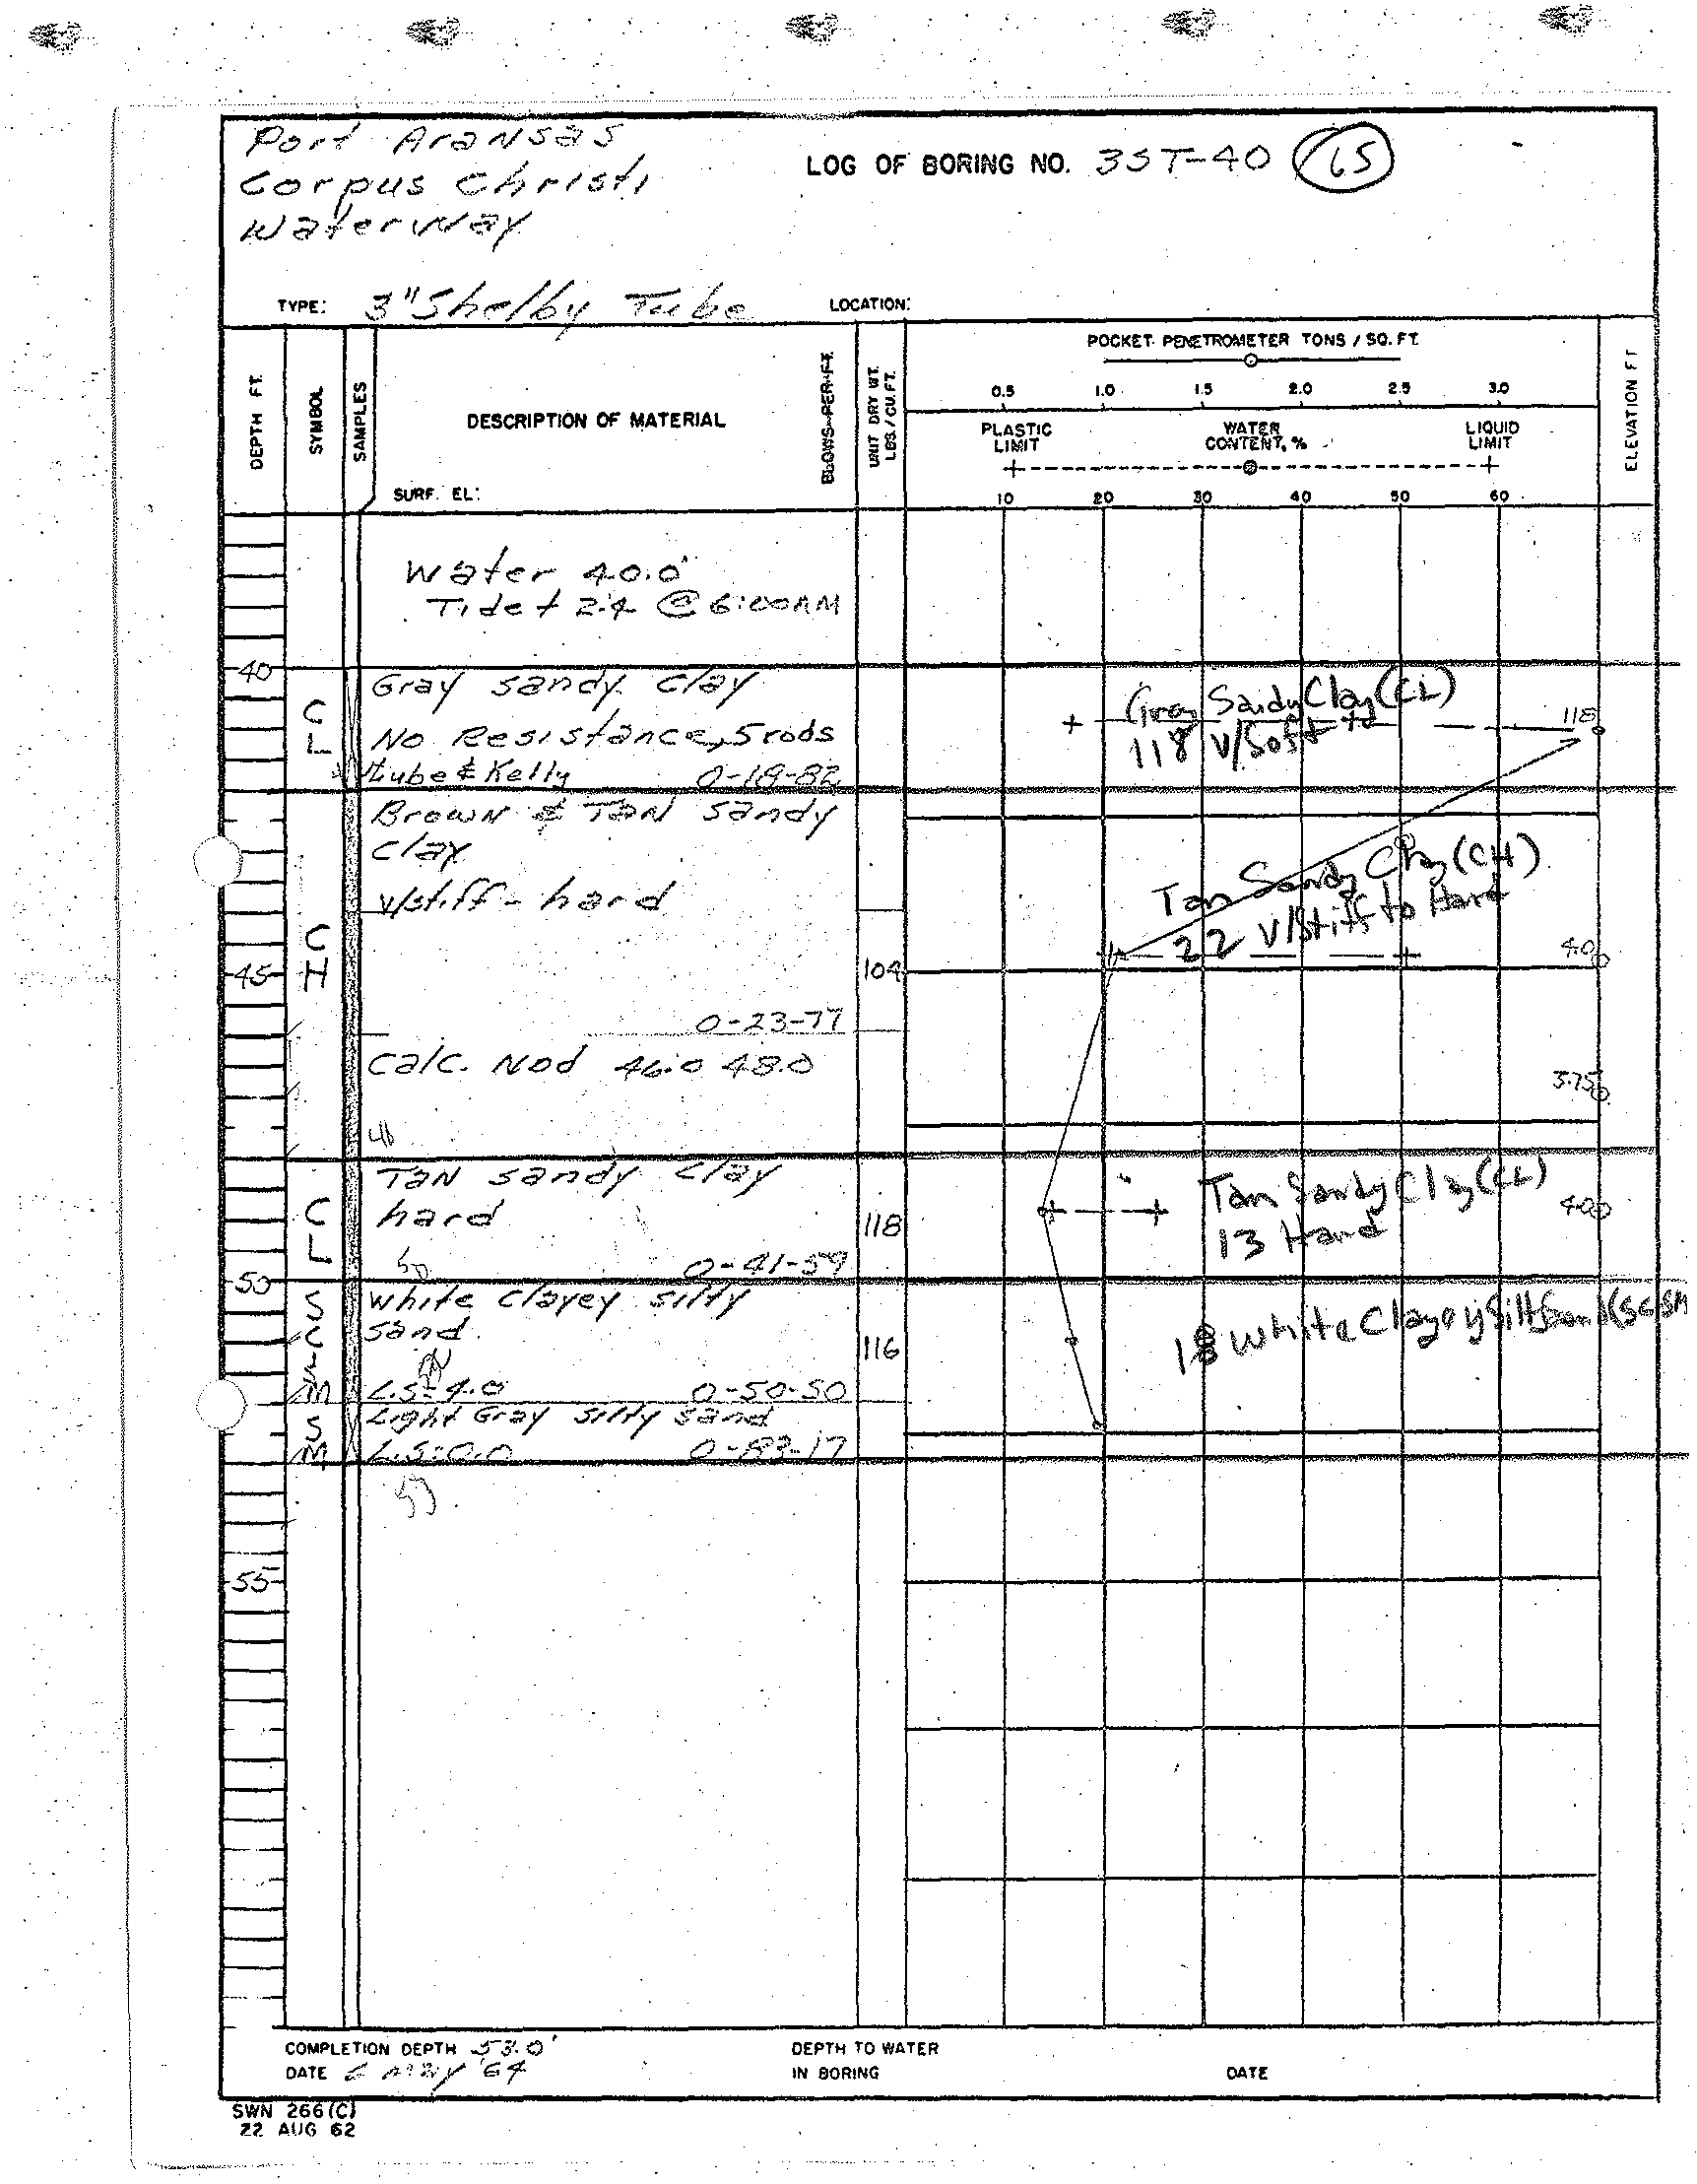 Port Aransas
Corpus Christi
Waterway
LOG OF BORING NO. 3ST-40
TYPE: 3" Shelby Tube
LOCATION:
DEPTH FT.
SYMBOL
SAMPLES
DESCRIPTION OF MATERIAL
SURF. EL:
BLOWS-PER-FT.
UNIT DRY WT. LBS./CU.FT.
POCKET PENETROMETER TONS / SQ. FT.
0.5 1.0 1.5 2.0 2.5 3.0
PLASTIC LIMIT
WATER CONTENT, %
LIQUID LIMIT
10 20 30 40 50 60
ELEVATION FT
Water 40.0'
Tide + 2.4 @ 6:00AM
40
CL
Gray sandy clay
No Resistance, 5 rods
tube & Kelly 0-18-82
Gray Sandy Clay (CL)
118 V/Soft to
118
Brown & Tan sandy
clay
v/stiff - hard
CH
45
104
0-23-77
Tan Sandy Clay (CH)
22 V/Stiff to Hard
4.0
Calc. Nod 46.0 48.0
3.75
48
Tan sandy clay
hard
CL
118
50
0-41-59
Tan Sandy Clay (CL)
13 Hard
4.0
50
White clayey silty
sand
SC-SM
116
L.S=4.0 0-50-50
18 White Clayey Silt Sand (SC SM
Light Gray silty sand
SM
L.S=0.0 0-83-17
53
55
COMPLETION DEPTH 53.0'
DATE 6 May '64
DEPTH TO WATER
IN BORING
DATE
SWN 266(C)
22 AUG 62